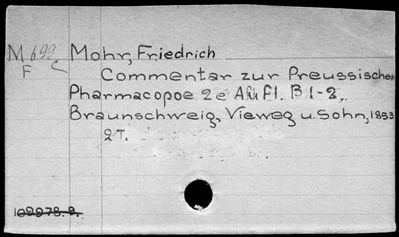 M 699 Mohr, Friedrich
F
Commentar zur Preussischen
Pharmacopoe 2e Aufl. B 1-2.
Braunschweig, Vieweg u. Sohn, 1853
2 T.
109978.B.